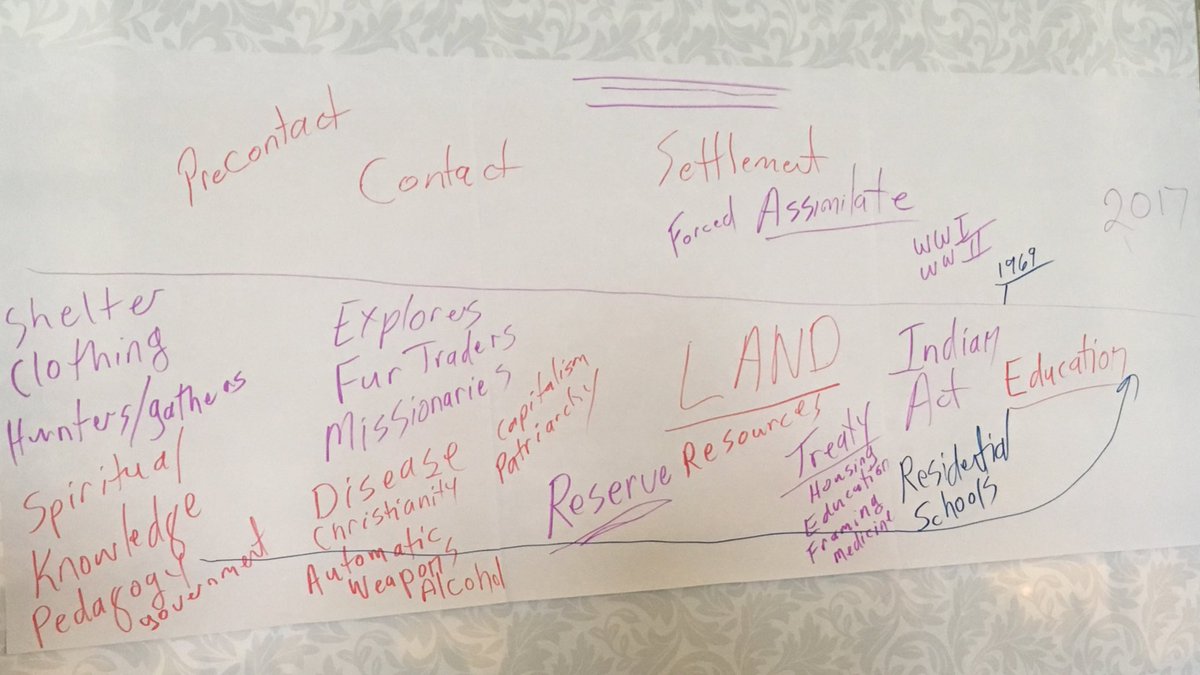 Precontact
Contact
Settlement
Forced Assimilate
WWI
WWII
1969
2017
Shelter
Clothing
Hunters/gathers
Spiritual
Knowledge
Pedagogy
government
Explores
Fur Traders
Missionaries
Disease
Christianity
Automatic
Weapons
Alcohol
Capitalism
Patriarchy
LAND
Resources
Reserve
Treaty
Housing
Education
Framing
medicine
Indian
Act
Education
Residential
Schools